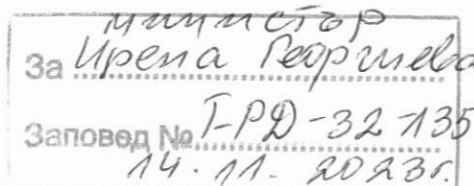 министър
За Ирена Георгиева
Заповед № Т-РД-32-135
14.11.2023г.